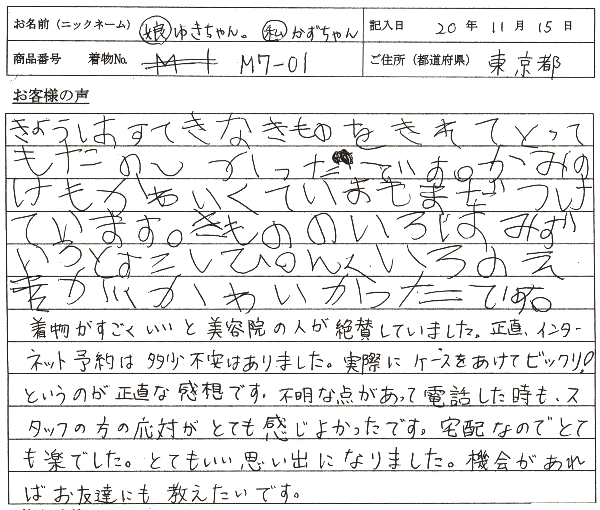 お名前(ニックネーム) 娘 ゆきちゃん。 私 かずちゃん 記入日 20 年 11 月 15 日
商品番号 着物No. M-1 M7-01 ご住所(都道府県) 東京都
お客様の声
きょうしはすてきなきものをきれてとって
もたのしかったです。かみの
けもかわいくていまもまだつけ
ています。きもののいろはみず
いろとすこしぴんくいろのえ
がかわいかったです。
着物がすごくいいと美容院の人が絶賛していました。正直、インター
ネット予約は多少不安はありました。実際にケースをあけてビックリ!
というのが正直な感想です。不明な点があって電話した時も、ス
タッフの方の応対がとても感じよかったです。宅配なのでとて
も楽でした。とてもいい思い出になりました。機会があれ
ばお友達にも教えたいです。